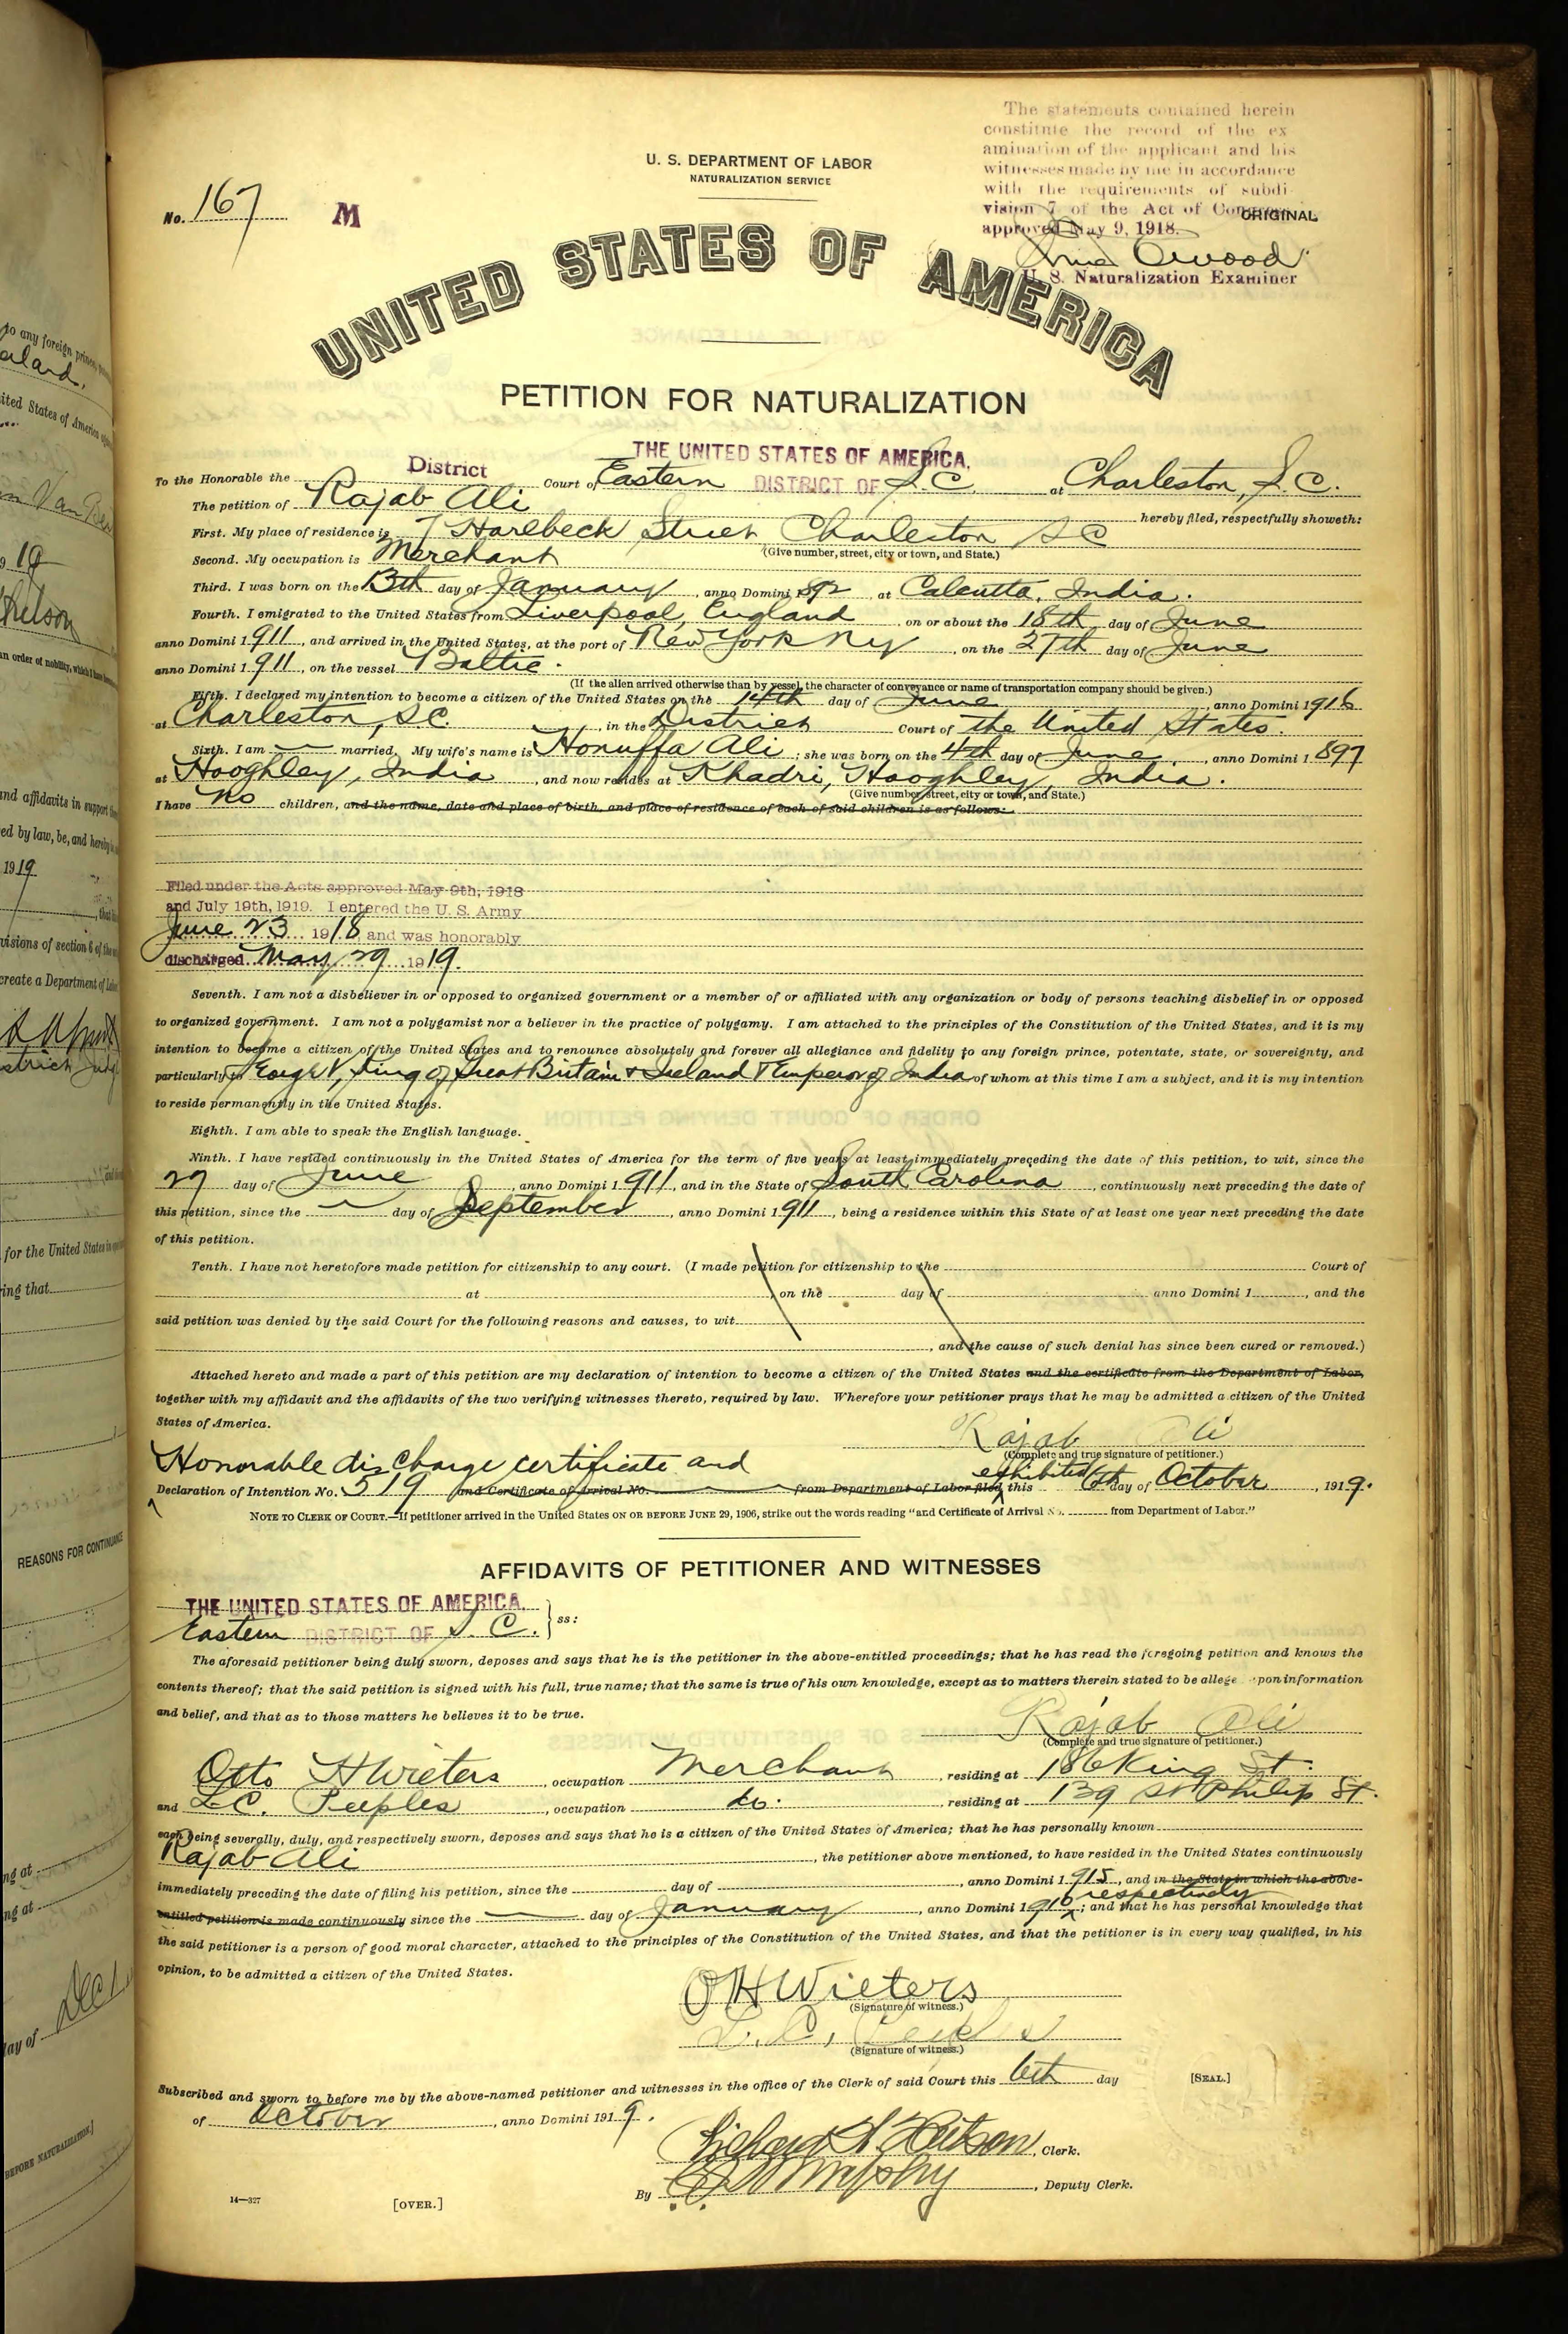 The statements contained herein
constitute the record of the ex
amination of the applicant and his
witnesses made by me in accordance
with the requirements of subdi-
vision 7 of the Act of Congress
approved May 9, 1918.
U. S. Naturalization Examiner
ORIGINAL
U. S. DEPARTMENT OF LABOR
NATURALIZATION SERVICE
No. 167 M
UNITED STATES OF AMERICA
PETITION FOR NATURALIZATION
THE UNITED STATES OF AMERICA,
To the Honorable the District Court of Eastern DISTRICT OF S.C. at Charleston, S.C.
The petition of Rajab Ali hereby filed, respectfully showeth:
First. My place of residence is 7 Harlbeck Street Charleston SC
(Give number, street, city or town, and State.)
Second. My occupation is Merchant
Third. I was born on the 13th day of January, anno Domini 1892, at Calcutta, India.
Fourth. I emigrated to the United States from Liverpool, England on or about the 18th day of June
anno Domini 1911, and arrived in the United States, at the port of New York NY, on the 27th day of June
anno Domini 1911, on the vessel Baltic.
(If the alien arrived otherwise than by vessel, the character of conveyance or name of transportation company should be given.)
Fifth. I declared my intention to become a citizen of the United States on the 14th day of June, anno Domini 1916
at Charleston, S.C., in the District Court of the United States.
Sixth. I am — married. My wife's name is Honuffa Ali; she was born on the 4th day of June, anno Domini 1897
at Hooghley, India, and now resides at Khadri, Hooghley, India.
(Give number, street, city or town, and State.)
I have no children, and the name, date and place of birth, and place of residence of each of said children is as follows:
Filed under the Acts approved May 9th, 1918
and July 19th, 1919. I entered the U. S. Army
June 23 1918 and was honorably
discharged May 29 1919.
Seventh. I am not a disbeliever in or opposed to organized government or a member of or affiliated with any organization or body of persons teaching disbelief in or opposed
to organized government. I am not a polygamist nor a believer in the practice of polygamy. I am attached to the principles of the Constitution of the United States, and it is my
intention to become a citizen of the United States and to renounce absolutely and forever all allegiance and fidelity to any foreign prince, potentate, state, or sovereignty, and
particularly to George V, King of Great Britain & Ireland & Emperor of India of whom at this time I am a subject, and it is my intention
to reside permanently in the United States.
Eighth. I am able to speak the English language.
Ninth. I have resided continuously in the United States of America for the term of five years at least, immediately preceding the date of this petition, to wit, since the
27 day of June, anno Domini 1911, and in the State of South Carolina, continuously next preceding the date of
this petition, since the — day of September, anno Domini 1911, being a residence within this State of at least one year next preceding the date
of this petition.
Tenth. I have not heretofore made petition for citizenship to any court. (I made petition for citizenship to the Court of
at, on the day of anno Domini 1, and the
said petition was denied by the said Court for the following reasons and causes, to wit
, and the cause of such denial has since been cured or removed.)
Attached hereto and made a part of this petition are my declaration of intention to become a citizen of the United States and the certificate from the Department of Labor,
together with my affidavit and the affidavits of the two verifying witnesses thereto, required by law. Wherefore your petitioner prays that he may be admitted a citizen of the United
States of America.
Rajab Ali
(Complete and true signature of petitioner.)
Honorable discharge certificate and
exhibited
Declaration of Intention No. 519 and Certificate of Arrival No. from Department of Labor filed this 6th day of October, 1919.
NOTE TO CLERK OF COURT.—If petitioner arrived in the United States ON OR BEFORE JUNE 29, 1906, strike out the words reading "and Certificate of Arrival No. from Department of Labor."
AFFIDAVITS OF PETITIONER AND WITNESSES
THE UNITED STATES OF AMERICA,
Eastern DISTRICT OF S. C. } ss:
The aforesaid petitioner being duly sworn, deposes and says that he is the petitioner in the above-entitled proceedings; that he has read the foregoing petition and knows the
contents thereof; that the said petition is signed with his full, true name; that the same is true of his own knowledge, except as to matters therein stated to be alleged upon information
and belief, and that as to those matters he believes it to be true.
Rajab Ali
(Complete and true signature of petitioner.)
Otto H Wieters, occupation Merchant, residing at 186 King St.
and L.C. Peeples, occupation do., residing at 139 St Philip St.
each being severally, duly, and respectively sworn, deposes and says that he is a citizen of the United States of America; that he has personally known
Rajab Ali, the petitioner above mentioned, to have resided in the United States continuously
immediately preceding the date of filing his petition, since the day of, anno Domini 1915, and in the State in which the above-
respectively
entitled petition is made continuously since the — day of January, anno Domini 1916; and that he has personal knowledge that
the said petitioner is a person of good moral character, attached to the principles of the Constitution of the United States, and that the petitioner is in every way qualified, in his
opinion, to be admitted a citizen of the United States.
O H Wieters
(Signature of witness.)
L. C. Peeples
(Signature of witness.)
Subscribed and sworn to before me by the above-named petitioner and witnesses in the office of the Clerk of said Court this 6th day [SEAL.]
of October, anno Domini 1919.
Richard W. Hutson, Clerk.
By, Deputy Clerk.
14—327
[OVER.]